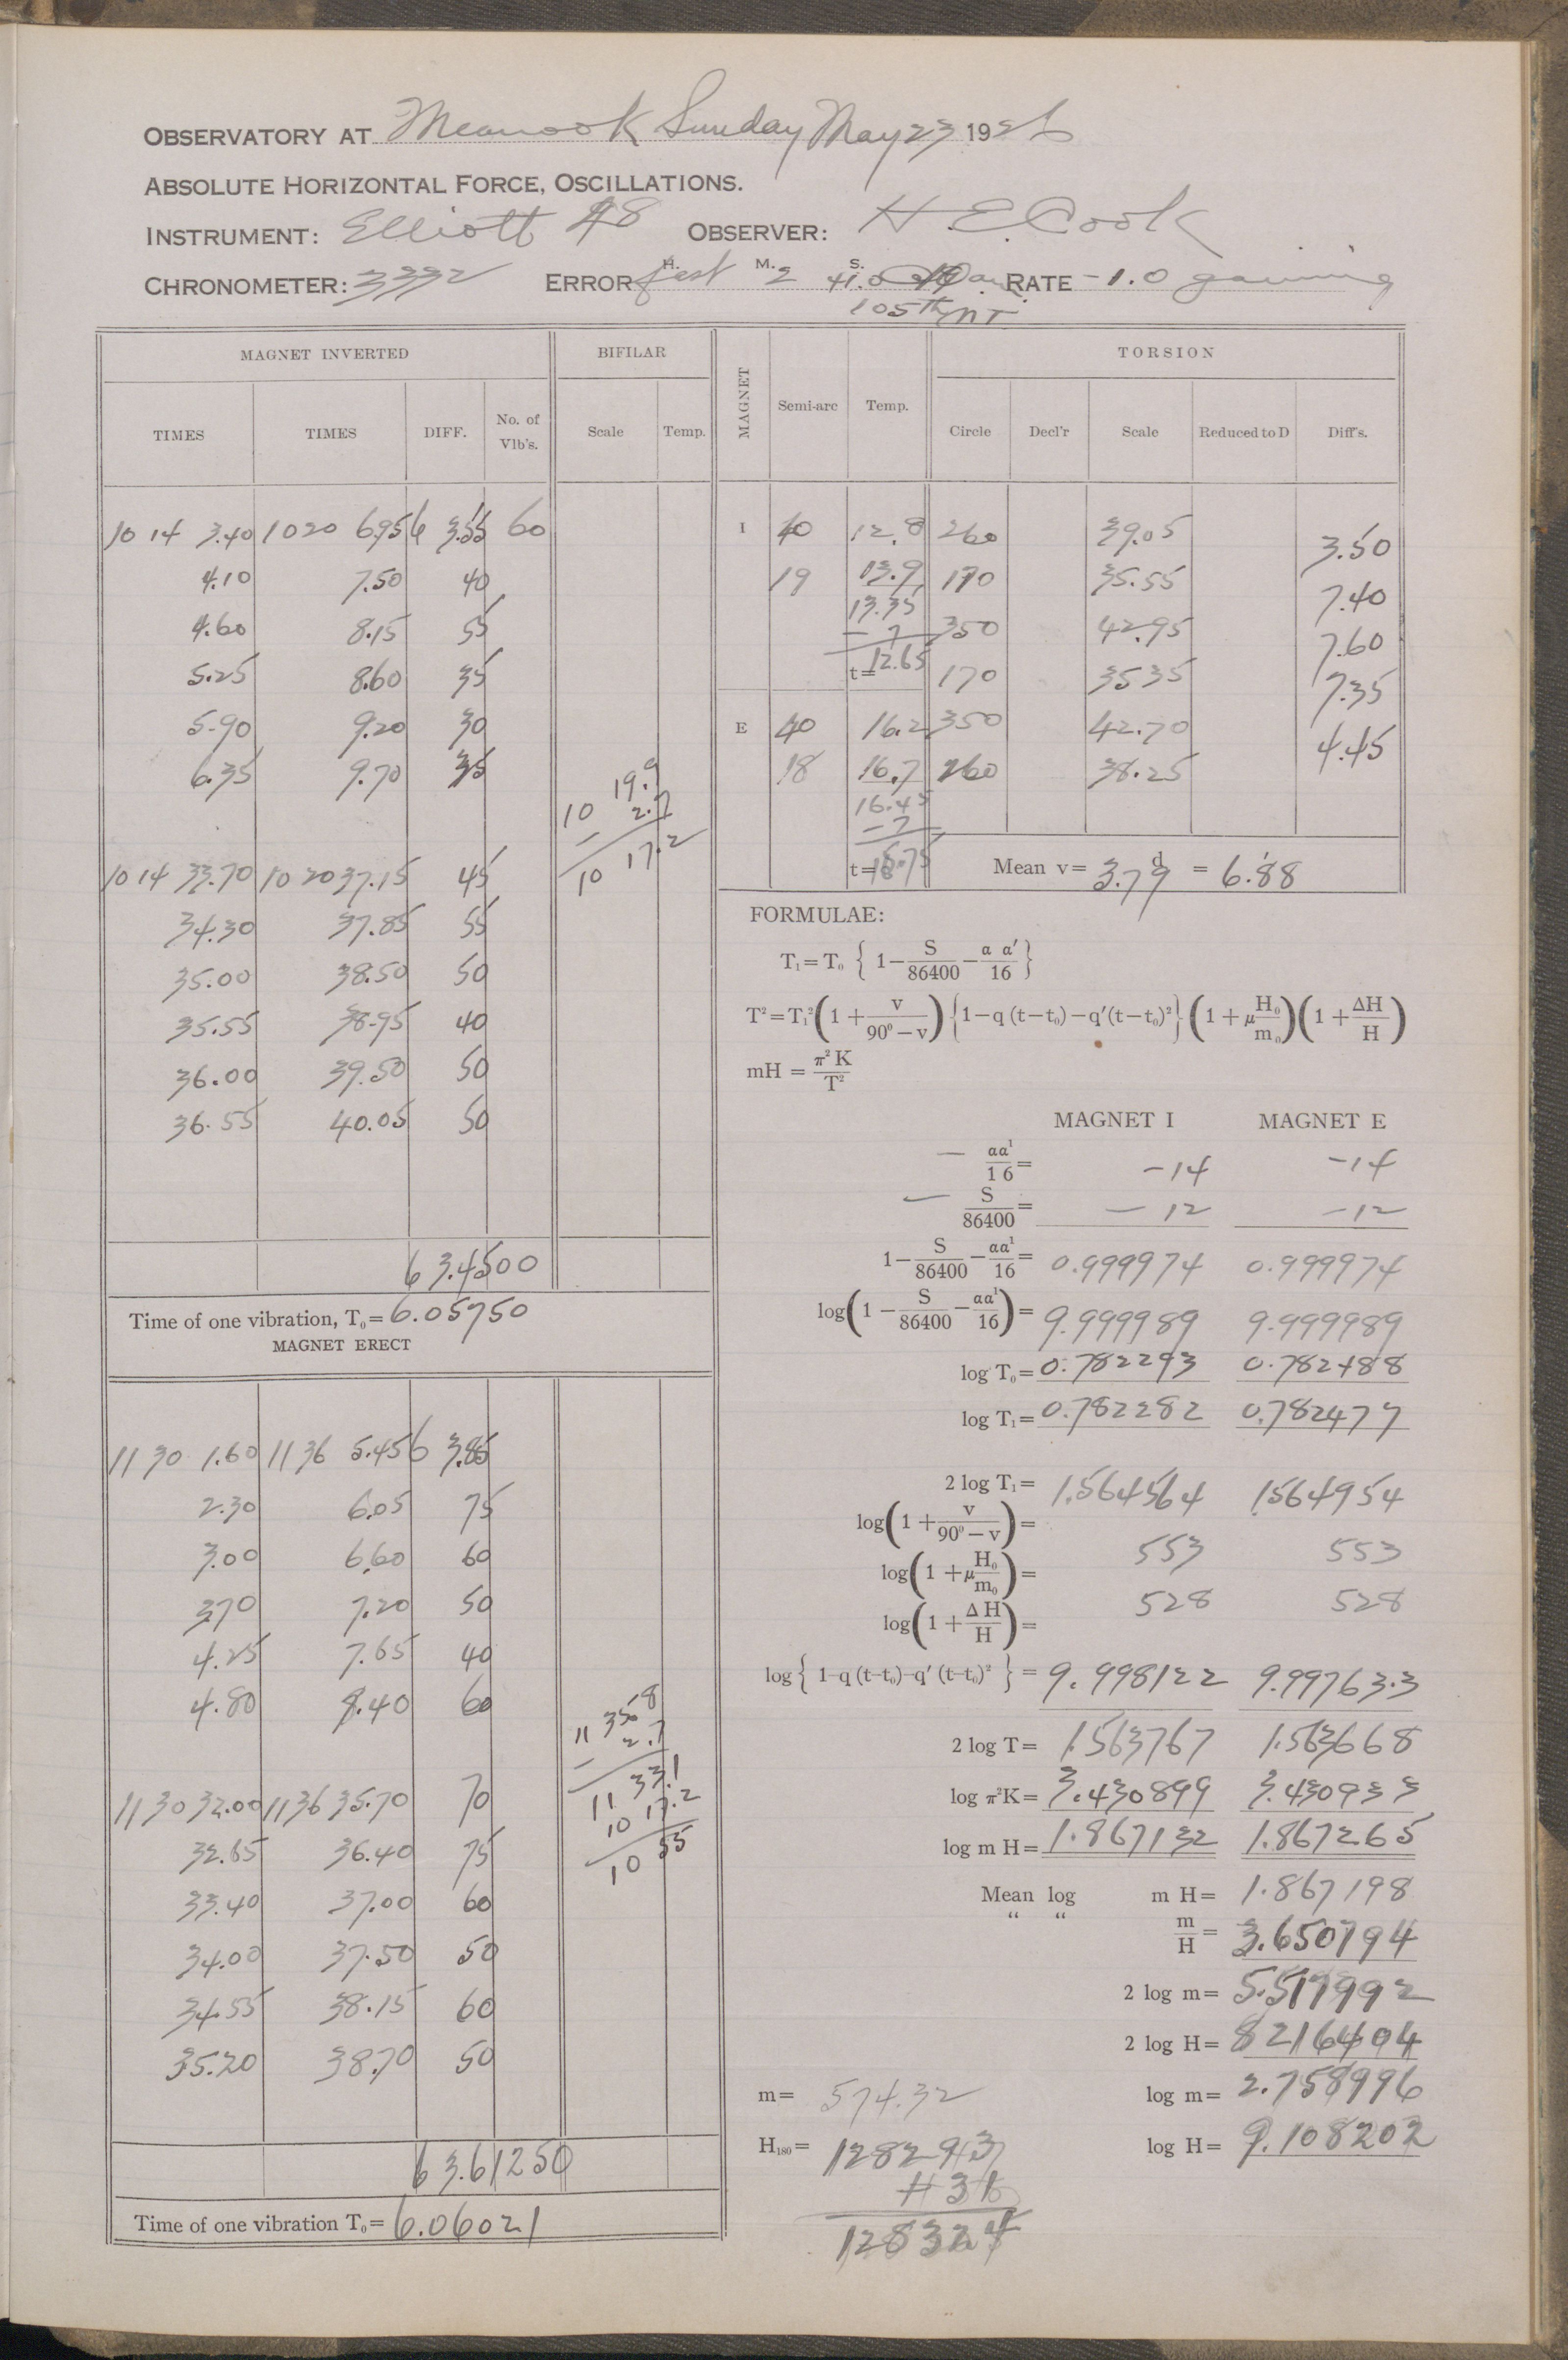 OBSERVATORY AT Meanook Sunday May 23 1926
ABSOLUTE HORIZONTAL FORCE, OSCILLATIONS.
INSTRUMENT: Elliott 48 OBSERVER: H. E. Cook
CHRONOMETER: 3332 ERROR H. fast M. 2 S. 41.0 RATE -1.0 gaining
105th MT
MAGNET INVERTED BIFILAR
TIMES TIMES DIFF. No. of Vib's. Scale Temp.
10 14 3.40 10 20 6.95 6 3.55 60
4.10 7.50 40
4.60 8.15 55
5.25 8.60 35
5.90 9.20 30
6.35 9.70 35
10 19.9
– 2.7
10 17.2
10 14 33.70 10 20 37.15 45
34.30 37.85 55
35.00 38.50 50
35.55 38.95 40
36.00 39.50 50
36.55 40.05 50
6 3.4500
Time of one vibration, T₀= 6.05750
MAGNET ERECT
11 30 1.60 11 36 5.45 6 3.85
2.30 6.05 75
3.00 6.60 60
3.70 7.20 50
4.25 7.65 40
4.80 8.40 60
11 35.8
– 2.7
11 33.1
10 17.2
10 55
11 30 32.00 11 36 35.70 70
32.65 36.40 75
33.40 37.00 60
34.00 37.50 50
34.55 38.15 60
35.20 38.70 50
6 3.61250
Time of one vibration T₀= 6.06021
MAGNET Semi-arc Temp. TORSION
Circle Decl'r Scale Reduced to D Diff's.
I 40 12.8 260 39.05
3.50
19 13.9 170 35.55
13.35 7.40
– 7 350 42.95
7.60
t= 12.65 170 35.35
7.35
E 40 16.2 350 42.70
4.45
18 16.7 260 38.25
16.45
– 7
t= 15.75 Mean v= 3.79 d = 6.'88
FORMULAE:
T₁=T₀ { 1–S/86400–a a'/16 }
T²=T₁²(1+v/90⁰–v){1–q (t–t₀)–q'(t–t₀)²}(1+μH₀/m₀)(1+ΔH/H)
mH = π²K/T²
MAGNET I MAGNET E
– aa¹/16= -14 -14
– S/86400= – 12 -12
1–S/86400–aa¹/16= 0.999974 0.999974
log(1–S/86400–aa¹/16)= 9.999989 9.999989
log T₀= 0.782293 0.782488
log T₁= 0.782282 0.782477
2 log T₁= 1.564564 1564954
log(1+v/90⁰–v)= 553 553
log(1+μH₀/m₀)= 528 528
log(1+ΔH/H)=
log{ 1–q (t–t₀)–q' (t–t₀)² }= 9.998122 9.997633
2 log T= 1.563767 1.563668
log π²K= 3.430899 3.430933
log m H= 1.867132 1.867265
Mean log m H= 1.867198
" " m/H= 3.650794
2 log m= 5.517992
2 log H= 8216404
m= 574.32 log m= 2.758996
H₁₈₀= 128294 log H= 9.108202
+ 3
128324